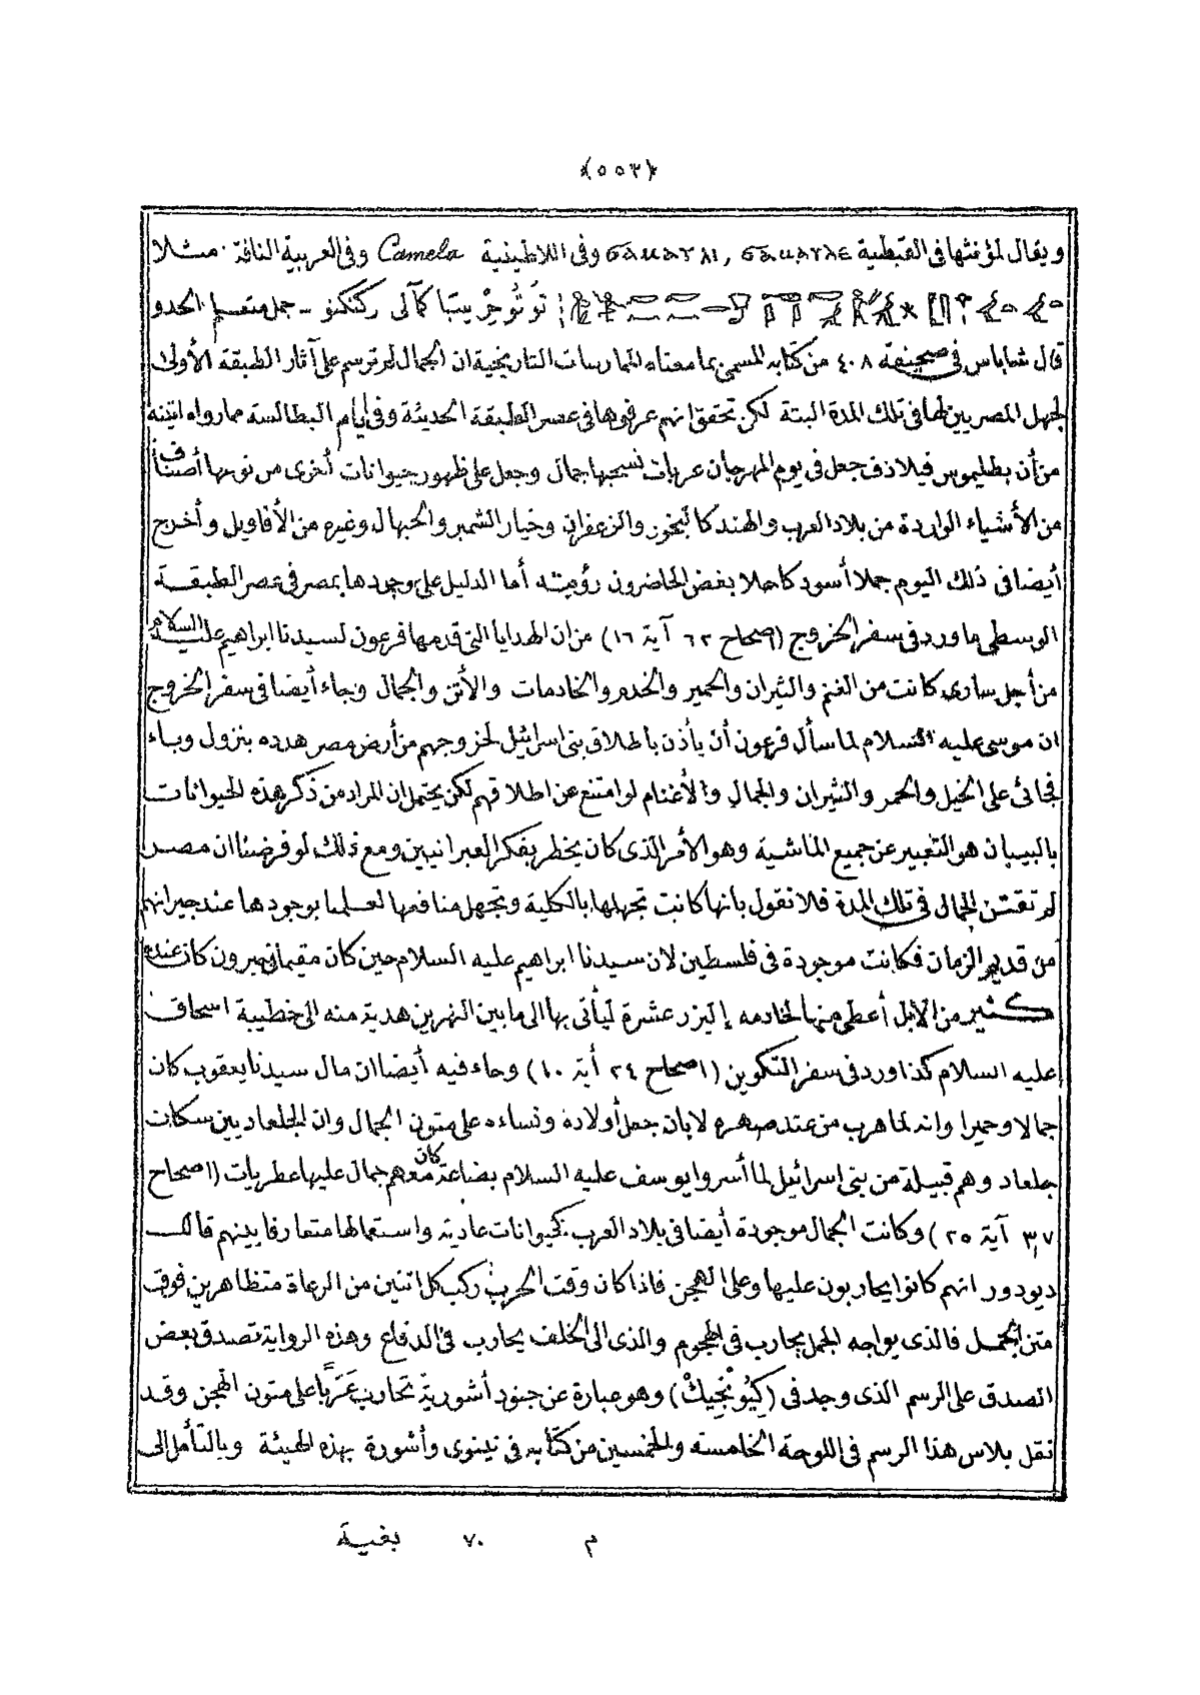 ﴿٥٥٣﴾
ويقال لمؤنثها فى القبطية ϭⲁⲙⲁⲩⲗⲉ , ϭⲁⲙⲁⲩⲗⲓ وفى اللاطينية Camela وفى العربية الناقة مثلا
تُوتُوحِرْ يبتبا كآلى ركنكنو - جمل متقسم الحدو
قال شاباس فى صحيفة ٤٠٨ من كتابه المسمى بما معناه الممارسات التاريخية ان الجمال لم ترسم على آثار الطبقة الأولى
لجهل المصريين لها فى تلك المدة البتة لكن تحقق انهم عرفوها فى عصر الطبقة الحديثة وفى ايام البطالسة مما رواه اتينه
من أن بطليموس فيلادف جعل فى يوم المهرجان عربات تسحبها جمال وجعل على ظهور حيوانات أخرى من نوعها أصنافا
من الأشياء الواردة من بلاد العرب والهند كالبخور والزعفران وخيار الشمبر والحبهال وغيره من الأفاويل وأخرج
أيضا فى ذلك اليوم جملا أسود كاحلا بغض الحاضرون رؤيته أما الدليل على وجودها بمصر فى عصر الطبقة
الوسطى ما ورد فى سفر الخروج (اصحاح ٦٢ آية ١٦) من ان الهدايا التى قدمها فرعون لسيدنا ابراهيم عليه السلام
من أجل سارى كانت من الغنم والثيران والحمير والخدم والخادمات والأتن والجمال وجاء أيضا فى سفر الخروج
ان موسى عليه السلام لما سأل فرعون أن يأذن باطلاق بنى اسرائيل لخروجهم من أرض مصر هدده بنزول وباء
فجائى على الخيل والحمر والثيران والجمال والأغنام لو امتنع عن اطلاقهم لكن يحتمل ان المراد من ذكر هذه الحيوانات
بالبيان هو التعبير عن جميع الماشية وهو الأمر الذى كان يخطر بفكر العبرانيين ومع ذلك لو فرضنا ان مصر
لم تقتن الجمال فى تلك المدة فلا نقول بانها كانت تجهلها بالكلية وتجهل منافعها لعلمنا بوجودها عند جيرانهم
من قديم الزمان فكانت موجودة فى فلسطين لان سيدنا ابراهيم عليه السلام حين كان مقيما بحبرون كان عنده
كثير من الابل أعطى منها لخادمه إليزر عشرة ليأتى بها الى ما بين النهرين هدية منه الى خطيبة اسحاق
عليه السلام كذا ورد فى سفر التكوين (اصحاح ٢٤ أية ١٠) وجاء فيه أيضا ان مال سيدنا يعقوب كان
جمالا وحميرا وانه لما هرب من عند صهره لابان جعل أولاده ونساءه على متون الجمال وان الجلعاديين سكان
جلعاد وهم قبيلة من بنى اسرائيل لما أسروا يوسف عليه السلام بضاعة كان معهم جمال عليها عطريات (اصحاح
٣٧ آية ٢٥) وكانت الجمال موجودة أيضا فى بلاد العرب كحيوانات عادية واستعمالها متعارفا بينهم قال
ديودور انهم كانوا يحاربون عليها وعلى الهجن فاذا كان وقت الحرب ركب كل اثنين من الرعاة متظاهرين فوق
متن الجمل فالذى يواجه الجمل يحارب فى الهجوم والذى الى الخلف يحارب فى الدفاع وهذه الرواية تصدق بعض
الصدق على الرسم الذى وجد فى (كِيُونْجِيكْ) وهو عبارة عن جنود أشورية تحارب عَرَبًا على متون الهجن وقد
نقل بلاس هذا الرسم فى اللوحة الخامسة والخمسين من كتابه فى نينوى وأشورة بهذه الهيئة وبالتأمل الى
م ٧٠ بغية